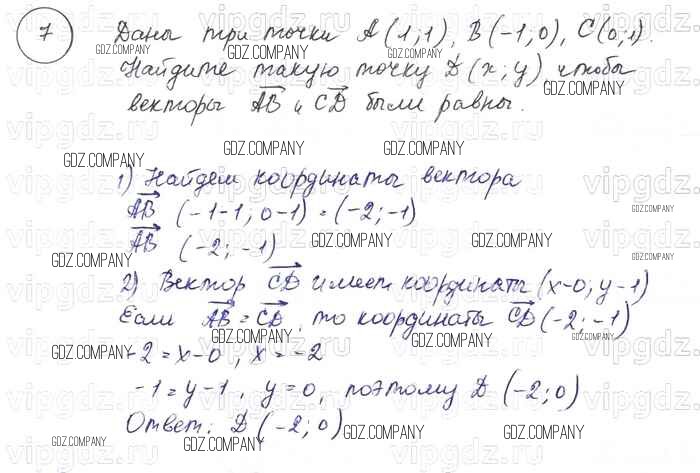 7 Даны три точки A(1;1), B(-1;0), C(0;1).
Найдите такую точку D(x;y), чтобы
векторы AB и CD были равны.
1) Найдем координаты вектора
AB (-1-1; 0-1) = (-2; -1)
AB (-2; -1)
2) Вектор CD имеет координаты (x-0; y-1)
Если AB = CD, то координаты CD (-2; -1)
-2 = x-0, x = -2
-1 = y-1, y = 0, поэтому D (-2; 0)
Ответ: D (-2; 0)